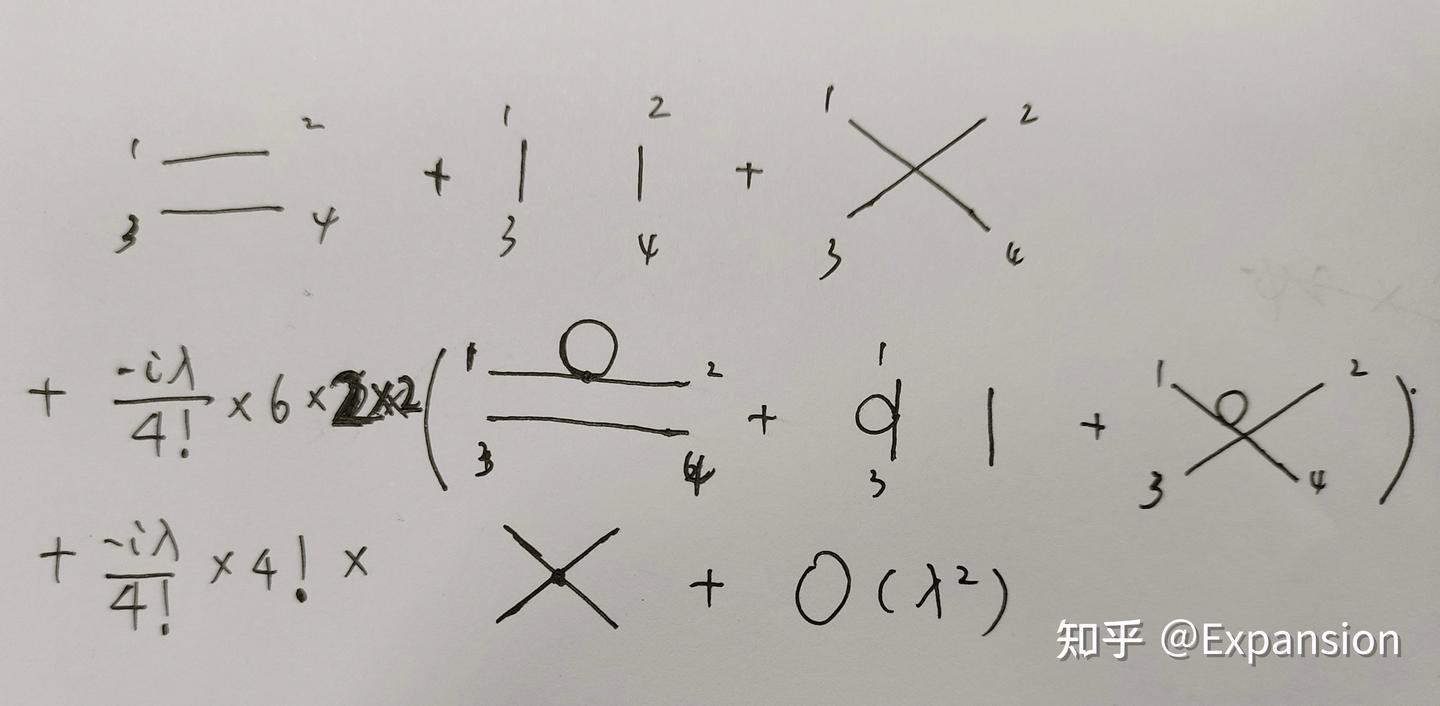 1 2 + 1 2 + 1 2
3 4 3 4 3 4
+ -iλ/4! × 6 × 2 × 2 ( 1 2 3 4 + 1 3 + 1 2 3 4 )
+ -iλ/4! × 4! × + O(λ²)
知乎 @Expansion